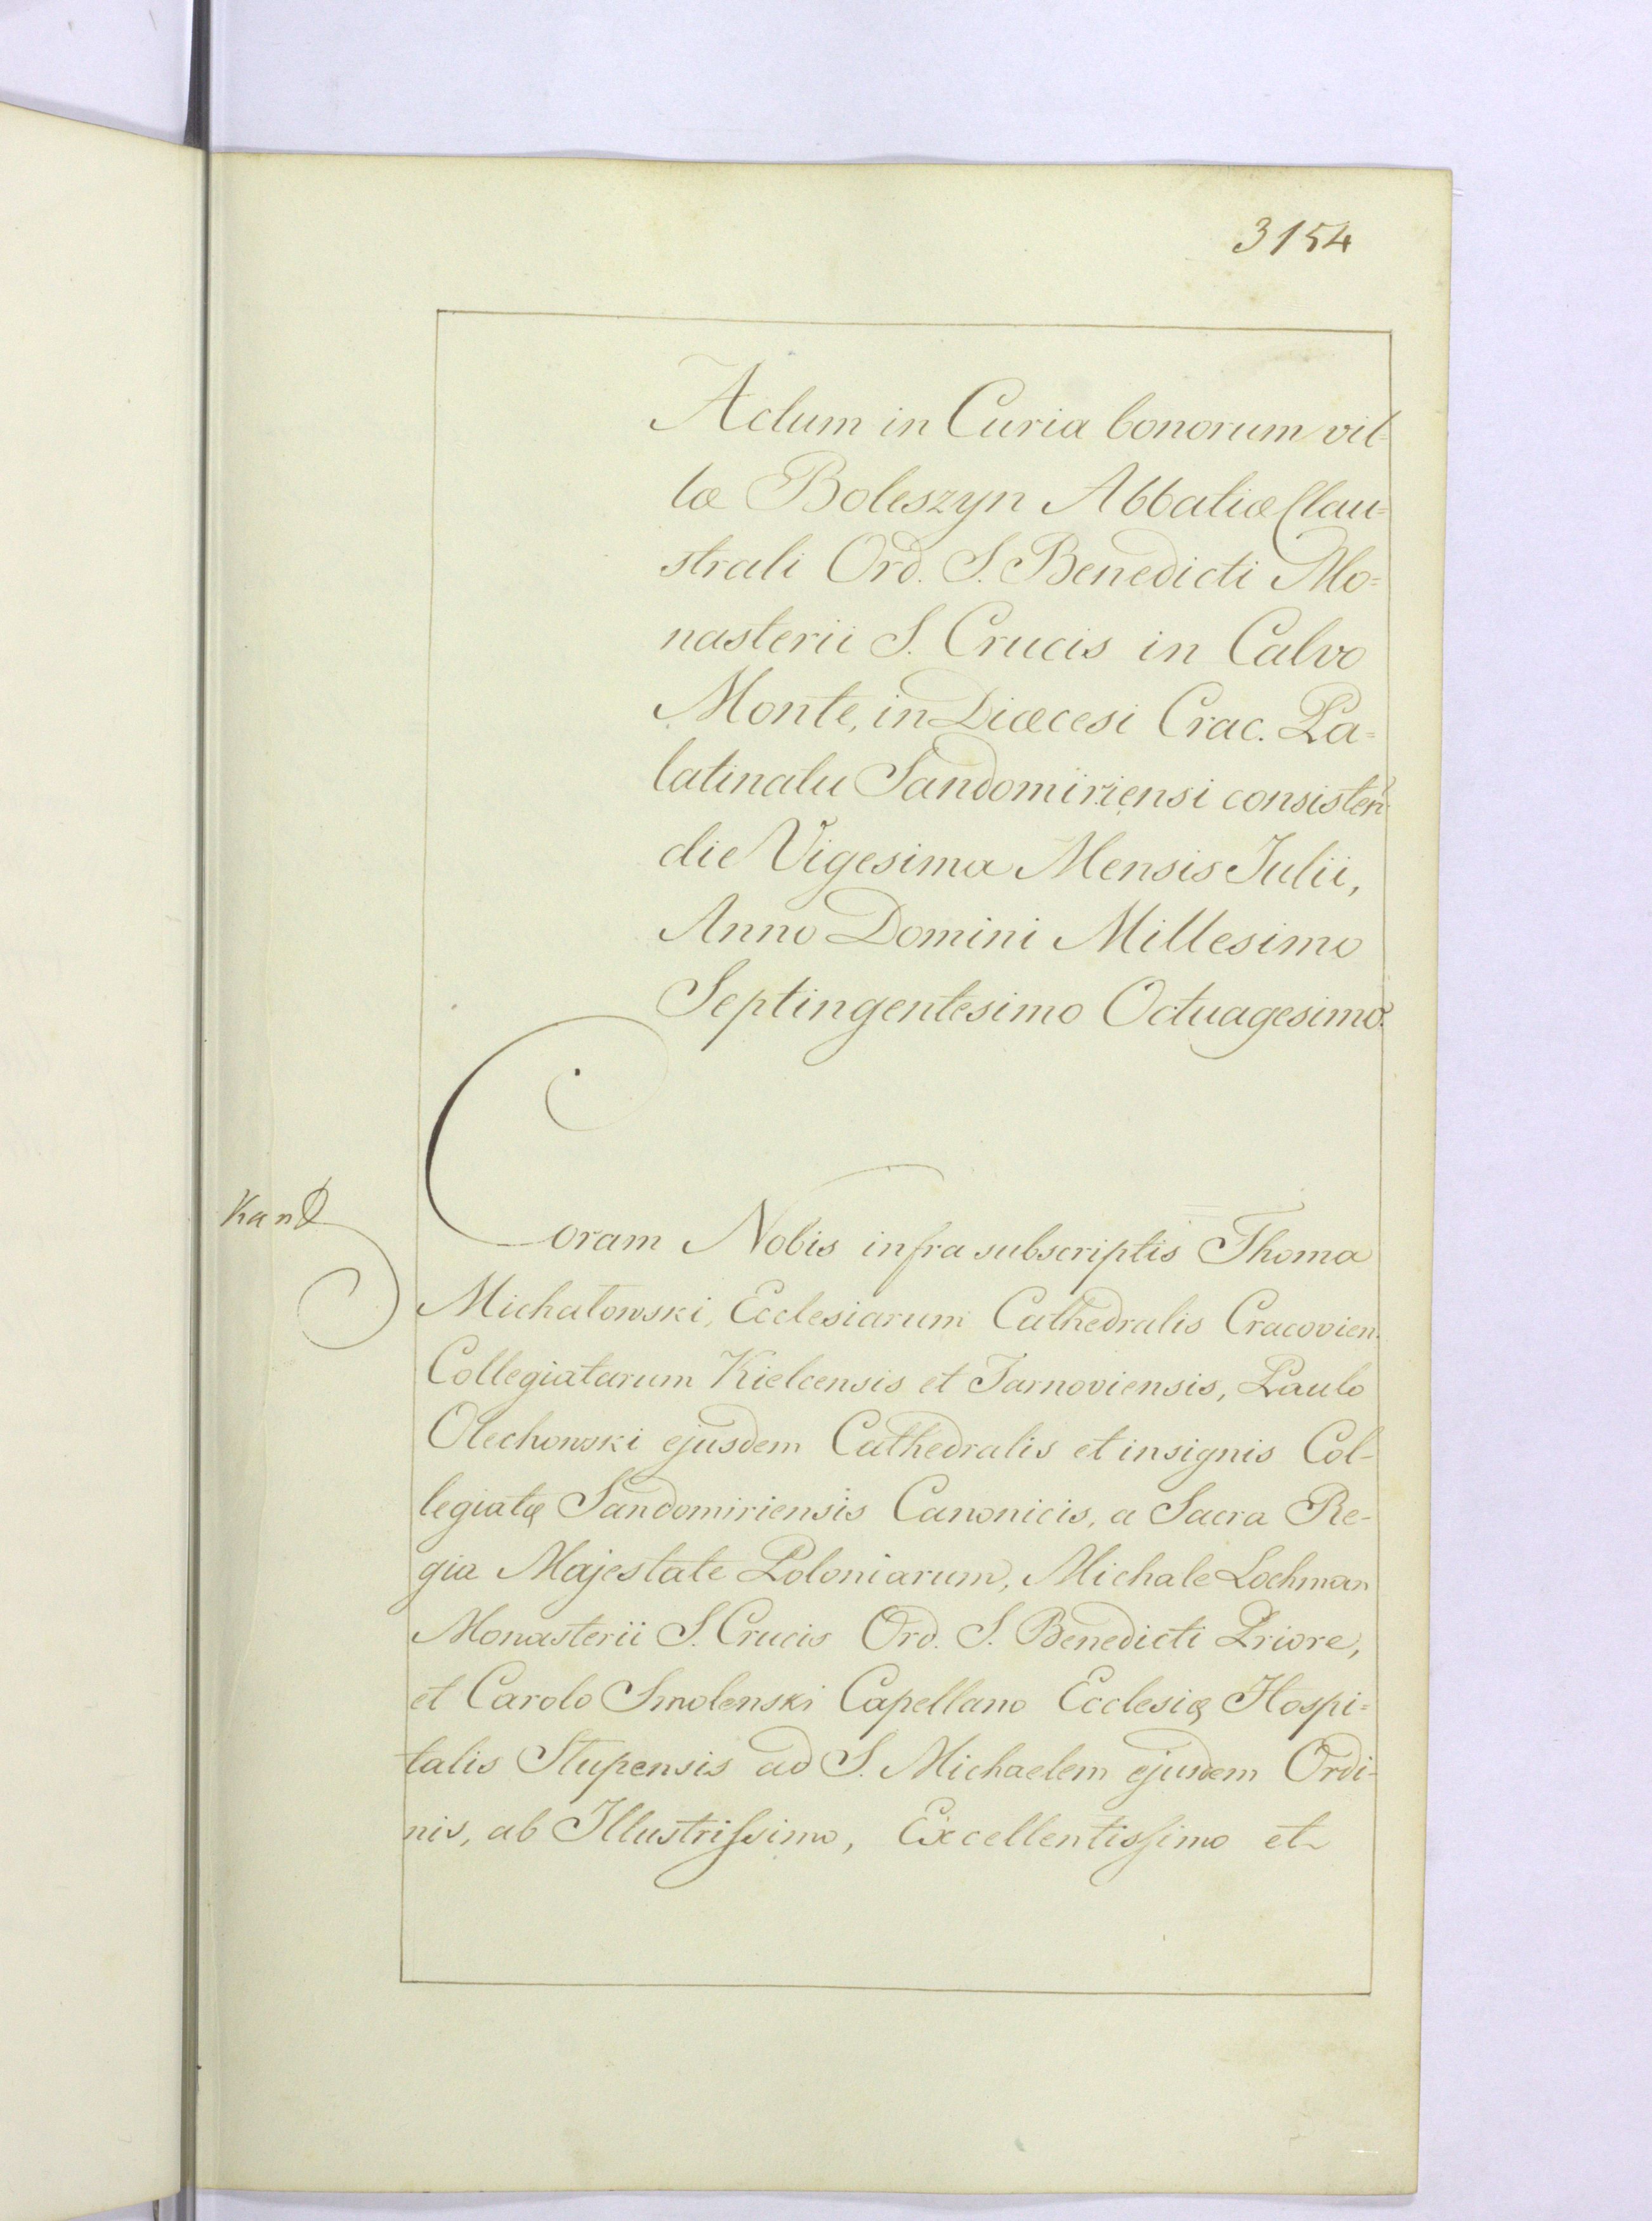 3154
Actum in Curia bonorum vil=
læ Boleszyn Abbatiæ Clau=
strali Ord. S. Benedicti Mo=
nasterii S. Crucis in Calvo
Monte, in Diæcesi Crac. Pa=
latinatu Sandomiriensi consisten̄
die Vigesima Mensis Julii,
Anno Domini Millesimo
Septingentesimo Octuagesimo.
Coram Nobis infra subscriptis Thoma
Michałowski, Ecclesiarum Cathedralis Cracovien.
Collegiatarum Kielcensis et Tarnoviensis, Paulo
Olechowski ejusdem Cathedralis et insignis Col-
legiatę Sandomiriensis Canonicis, a Sacra Re-
gia Majestate Poloniarum, Michale Lochman
Monasterii S. Crucis Ord. S. Benedicti Priore,
et Carolo Smolenski Capellano Ecclesię Hospi=
talis Słupensis ad S. Michaelem ejusdem Ordi-
nis, ab Illustrissimo, Excellentissimo et